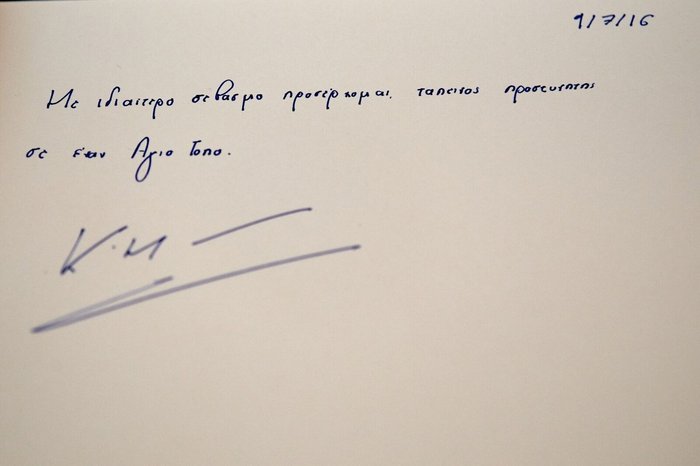 9/7/16
Με ιδιαιτερο σεβασμο προσέρχομαι, ταπεινος προσκυνητης
σε έναν Αγιο Τοπο.
Κ. Μ